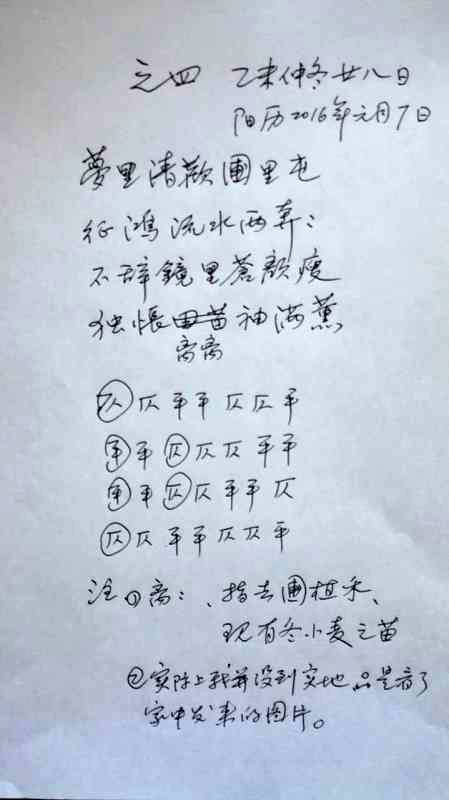 之四 乙未仲冬廿八日
阳历2016年元月7日
夢里清歡圃里屯
征鴻流水两奔:
不辞鏡里蒼颜瘦
独悵田苗袖满薰
离离
仄仄平平仄仄平
平平仄仄仄平平
平平仄仄平平仄
仄仄平平仄仄平
注①离:、指去圃植禾、
现有冬小麦之苗
②实际上我并没到实地只是看了
家中发来的图片。